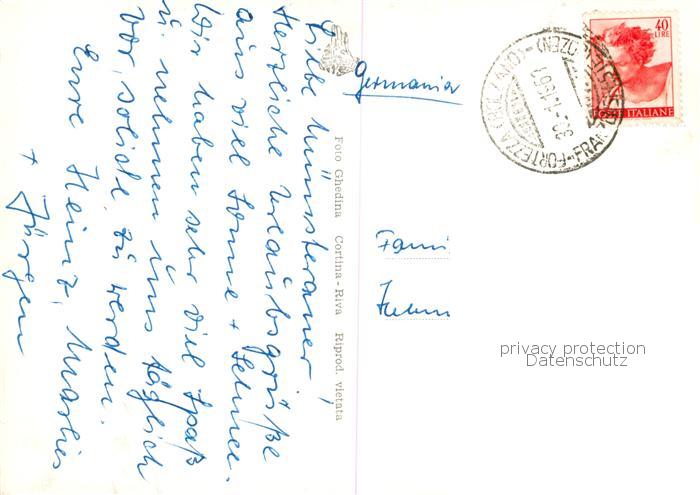 Liebe Münsteraner!
Herzliche Urlaubsgrüße
aus viel Sonne + Schnee.
Wir haben sehr viel Spaß
u. nehmen uns täglich
vor, solide zu werden.
Eure Heinz, Marlies
+ Jürgen
Foto Ghedina Cortina - Riva Riprod. vietata
Germania
40
LIRE
POSTE ITALIANE
FORTEZZA (BOLZANO)
Fami
privacy protection
Datenschutz